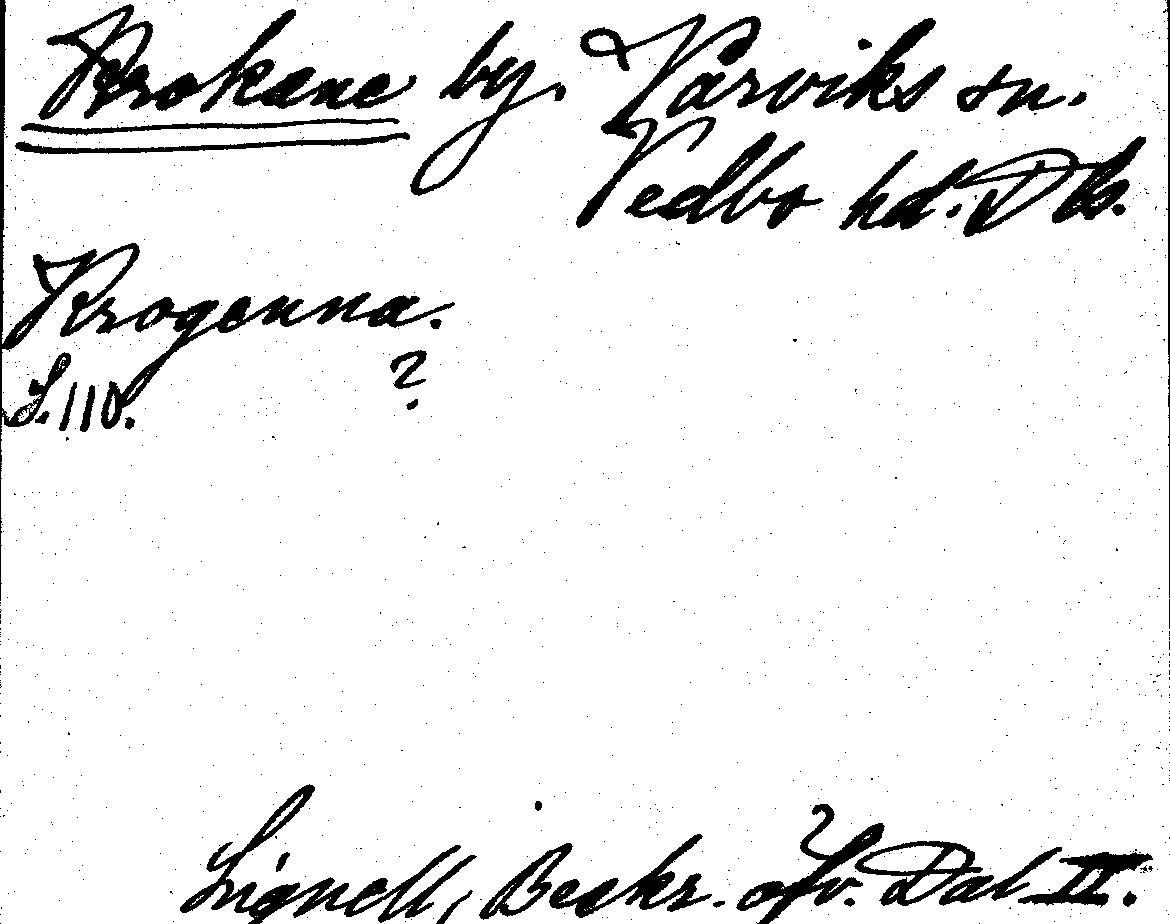 Krokane by. Vårviks sn.
Vedbo hd. Dls.
Krogenna.
S. 110. ?
Lignell, Beskr. öfv. Dal II.